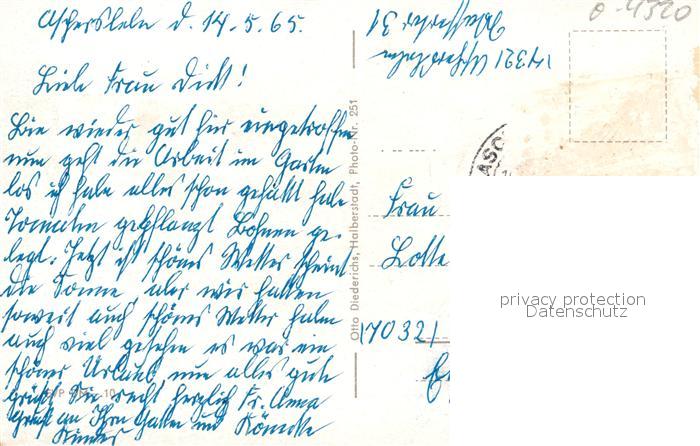 Aschersleben d. 14.5.65.
Liebe Frau Dickt!
Bin wieder gut hier eingetroffen
nun geht die Arbeit im Garten
los ich habe alles schon gehackt habe
Tomaten gepflanzt Bohnen ge-
legt. Jetzt ist schönes Wetter scheint
die Sonne, aber wir hatten
soweit auch schönes Wetter haben
auch viel gesehen es war ein
schöner Urlaub, nun alles gute
grüßt Sie recht herzlich Fr. Anna
Gruß an Ihren Gatten und
Kinder
Otto Diederichs, Halberstadt, Photo-Nr. 251
4321
31
ASC
Frau
Lotte
privacy protection
Datenschutz
(70321
0-4320